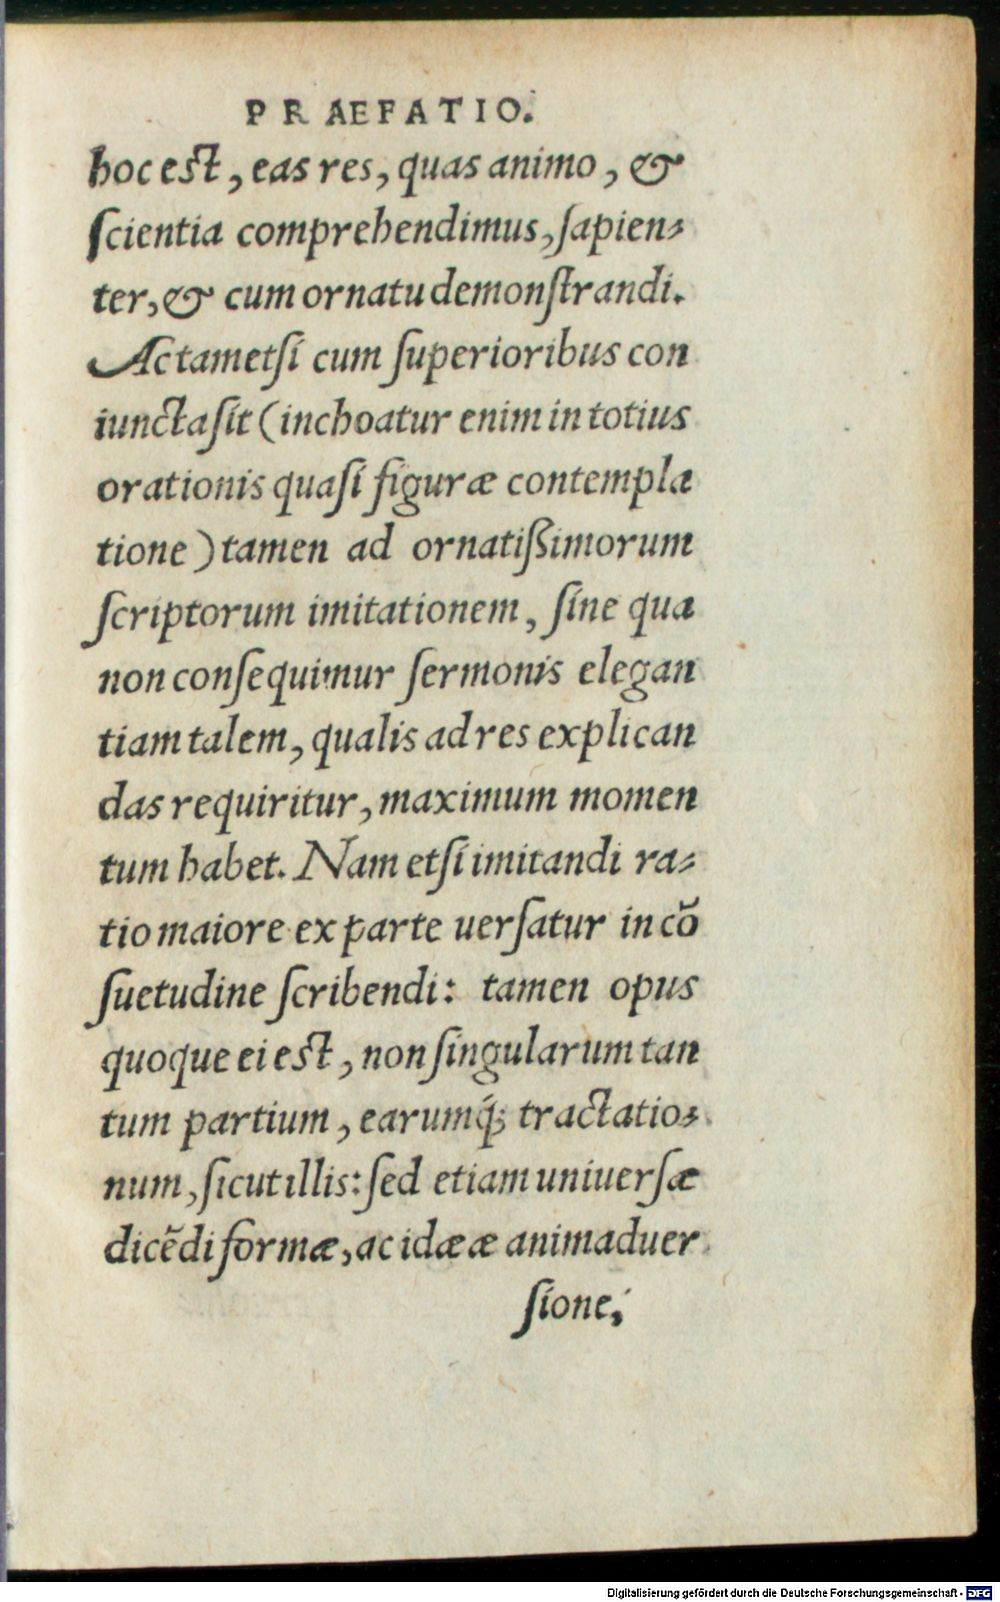 PRAEFATIO.
hoc est, eas res, quas animo, &
ſcientia comprehendimus, ſapien-
ter, & cum ornatu demonſtrandi.
Ac tametſi cum ſuperioribus con
iuncta ſit (inchoatur enim in totius
orationis quaſi figuræ contempla
tione) tamen ad ornatiſſimorum
ſcriptorum imitationem, ſine qua
non conſequimur ſermonis elegan
tiam talem, qualis ad res explican
das requiritur, maximum momen
tum habet. Nam etſi imitandi ra-
tio maiore ex parte uerſatur in cõ
ſuetudine ſcribendi: tamen opus
quoque ei eſt, non ſingularum tan
tum partium, earumq́; tractatio-
num, ſicut illis: ſed etiam uniuerſæ
dicẽdi formæ, ac idææ animaduer
ſione,
Digitalisierung gefördert durch die Deutsche Forschungsgemeinschaft - DFG